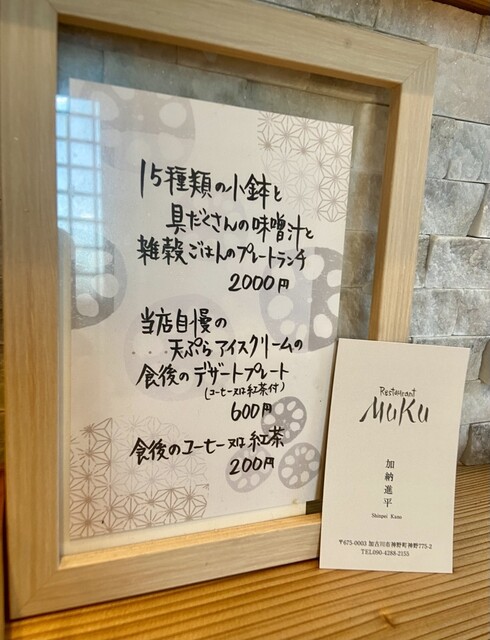 15種類の小鉢と
具だくさんの味噌汁と
雑穀ごはんのプレートランチ
2000円
当店自慢の
天ぷらアイスクリームの
食後のデザートプレート
(コーヒー又は紅茶付)
600円
食後のコーヒー又は紅茶
200円
Restaurant
MuKu
加納進平
Shinpei Kano
〒675-0003 加古川市神野町神野775-2
TEL090-4288-2155